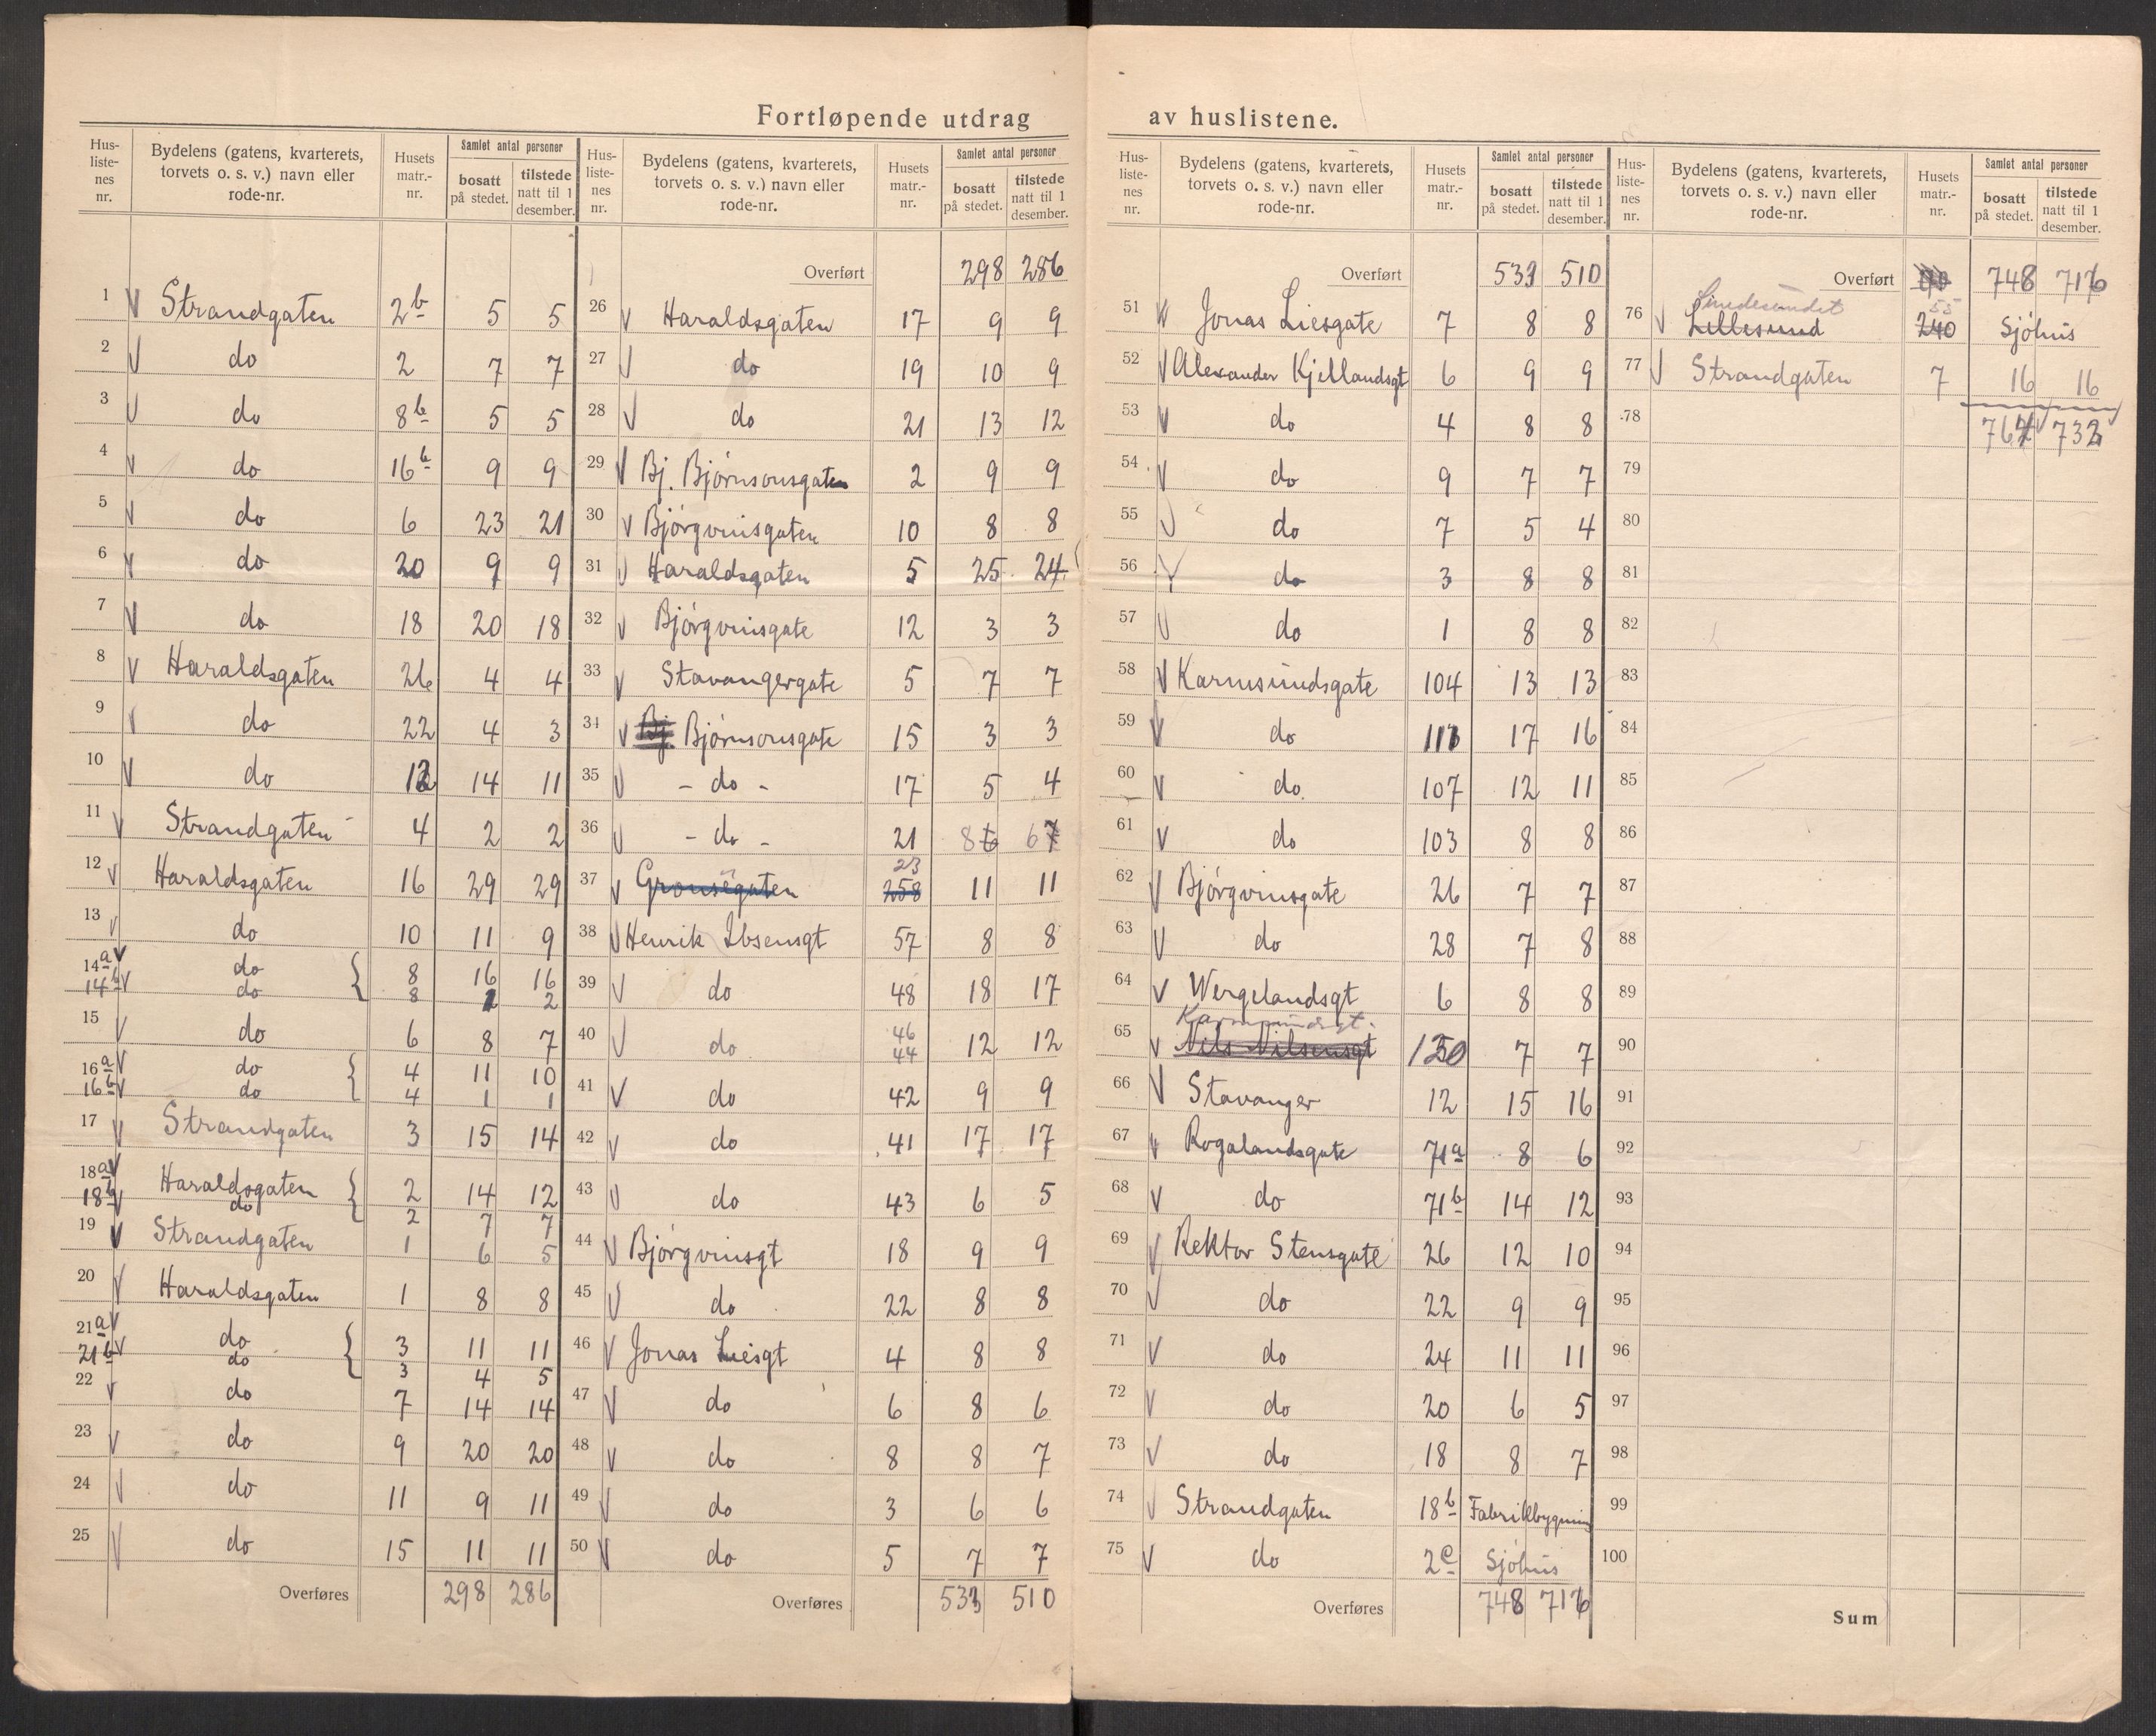 Fortløpende utdrag av huslistene.
Hus-liste-nes nr. | Bydelens (gatens, kvarterets, torvets o. s. v.) navn eller rode-nr. | Husets matr.-nr. | Samlet antal personer bosatt på stedet. | tilstede natt til 1 desember.
1 V Strandgaten 2b 5 5
2 V do 2 7 7
3 V do 8b 5 5
4 V do 16b 9 9
5 V do 6 23 21
6 V do 20 9 9
7 V do 18 20 18
8 V Haraldsgaten 26 4 4
9 V do 22 4 3
10 V do 12 14 11
11 V Strandgaten 4 2 2
12 V Haraldsgaten 16 29 29
13 V do 10 11 9
14a V do 8 16 16
14b V do 8 2
15 V do 6 8 7
16a V do 4 11 10
16b V do 4 1 1
17 V Strandgaten 3 15 14
18a V Haraldsgaten 2 14 12
18b V do 2 7 7
19 V Strandgaten 1 6 5
20 V Haraldsgaten 1 8 8
21a V do 3 11 11
21b V do 3 4 5
22 V do 7 14 14
23 V do 9 20 20
24 V do 11 9 11
25 V do 15 11 11
Overføres 298 286
Hus-liste-nes nr. | Bydelens (gatens, kvarterets, torvets o. s. v.) navn eller rode-nr. | Husets matr.-nr. | Samlet antal personer bosatt på stedet. | tilstede natt til 1 desember.
Overført 298 286
26 V Haraldsgaten 17 9 9
27 V do 19 10 9
28 V do 21 13 12
29 V Bj. Bjørnsonsgaten 2 9 9
30 V Bjørgvinsgaten 10 8 8
31 V Haraldsgaten 5 25 24
32 V Bjørgvinsgate 12 3 3
33 V Stavangergate 5 7 7
34 V Bj. Bjørnsonsgate 15 3 3
35 V - do - 17 5 4
36 V - do - 21 8 6 6 7
37 V 23 258 11 11
38 V Henrik Ibsensgt 57 8 8
39 V do 48 18 17
40 V do 46 44 12 12
41 V do 42 9 9
42 V do 41 17 17
43 V do 43 6 5
44 V Bjørgvinsgt 18 9 9
45 V do 22 8 8
46 V Jonas Liesgt 4 8 8
47 V do 6 8 6
48 V do 8 8 7
49 V do 3 6 6
50 V do 5 7 7
Overføres 533 510
Hus-liste-nes nr. | Bydelens (gatens, kvarterets, torvets o. s. v.) navn eller rode-nr. | Husets matr.-nr. | Samlet antal personer bosatt på stedet. | tilstede natt til 1 desember.
Overført 533 510
51 V Jonas Liesgate 7 8 8
52 V Alexander Kjellandsgt 6 9 9
53 V do 4 8 8
54 V do 9 7 7
55 V do 7 5 4
56 V do 3 8 8
57 V do 1 8 8
58 V Karmsundsgate 104 13 13
59 V do 17 16
60 V do 107 12 11
61 V do 103 8 8
62 V Bjørgvinsgate 26 7 7
63 V do 28 7 8
64 V Wergelandsgt 6 8 8
Karmsundsgt.
65 V Nils Nilsensgt 130 7 7
66 V Stavanger 12 15 16
67 V Rogalandsgate 71a 8 6
68 V do 71b 14 12
69 V Rektor Stensgate 26 12 10
70 V do 22 9 9
71 V do 24 11 11
72 V do 20 6 5
73 V do 18 8 7
74 V Strandgaten 18b Fabrikkbygning
75 V do 2c Sjøhus
Overføres 748 716
Hus-liste-nes nr. | Bydelens (gatens, kvarterets, torvets o. s. v.) navn eller rode-nr. | Husets matr.-nr. | Samlet antal personer bosatt på stedet. | tilstede natt til 1 desember.
Overført 748 716
55
76 V Lillesund 240 Sjøhus
77 V Strandgaten 7 16 16
78 764 732
79
80
81
82
83
84
85
86
87
88
89
90
91
92
93
94
95
96
97
98
99
100
Sum